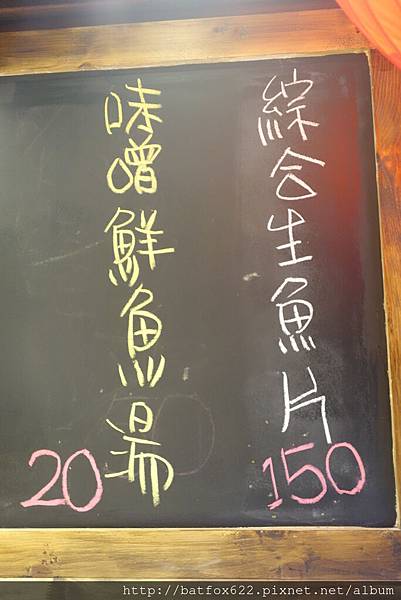 綜合生魚片
150
味噌鮮魚湯
20
http://batfox622.pixnet.net/album